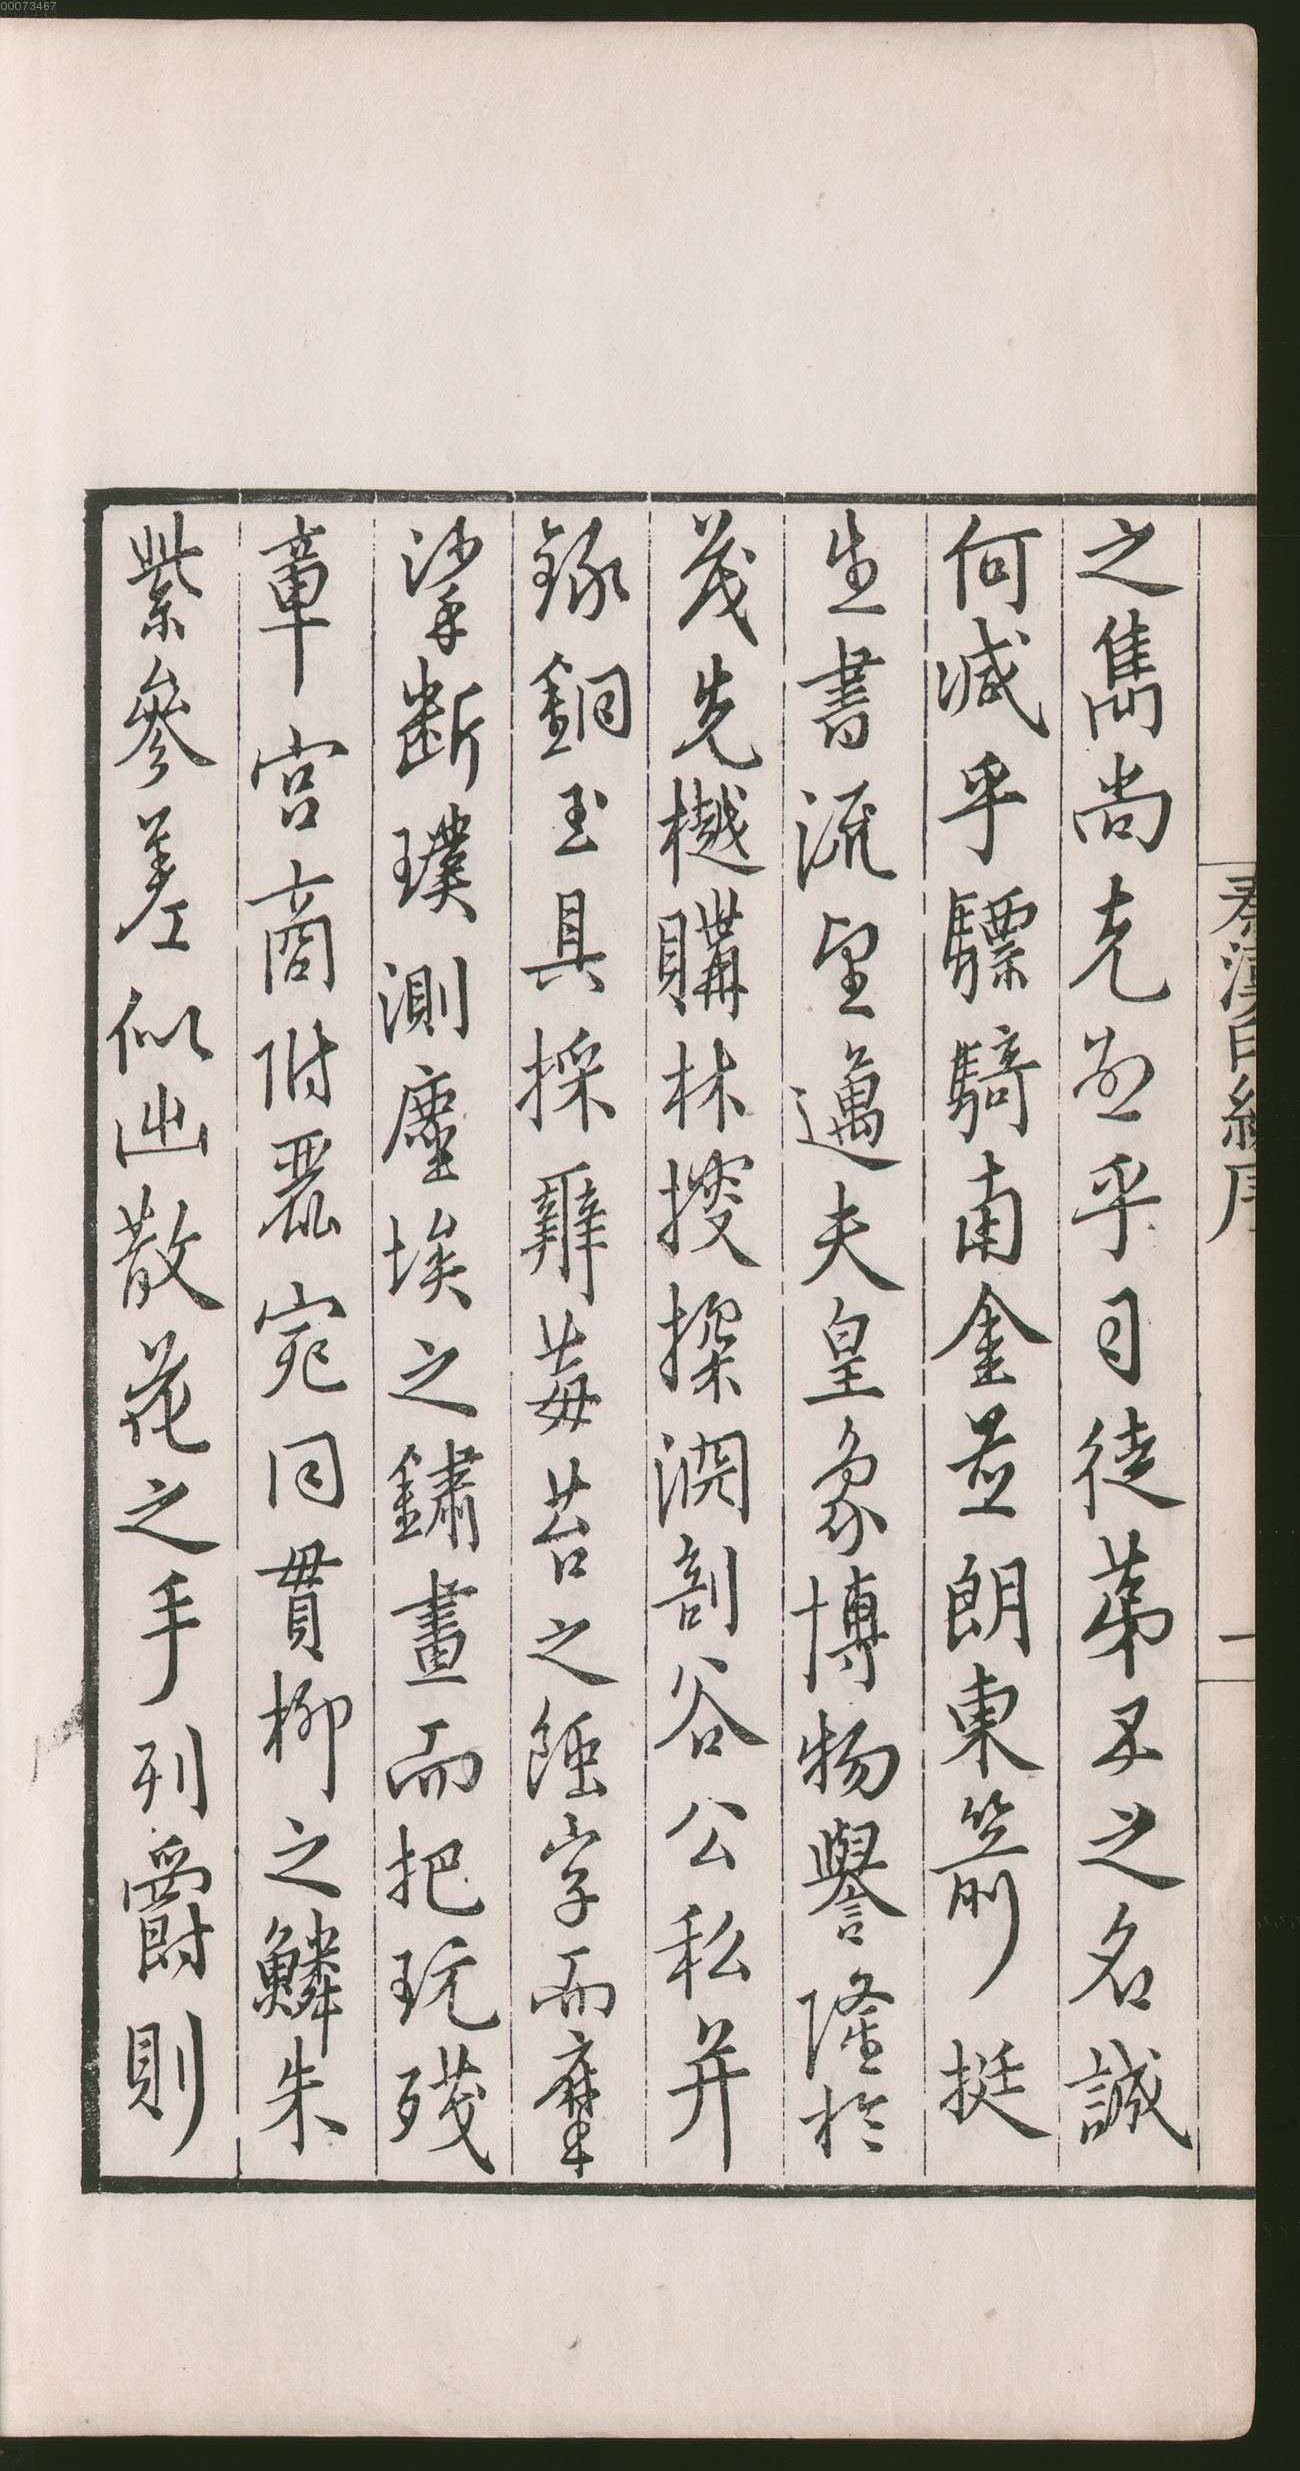 00073467
秦漢印統序
一
之雋尚克前乎司徒第五之名誠
何減乎驃騎南金並朗東箭挺
生書流望邁夫皇象博物譽隆於
茂先樾購林搜探淵剖谷公私并
錄銅玉具採辨莓苔之蝕字而摩
挲斷璞測塵埃之鏽畫而把玩殘
章宮商附麗宛同貫柳之鱗朱
紫參差似出散花之手列爵則